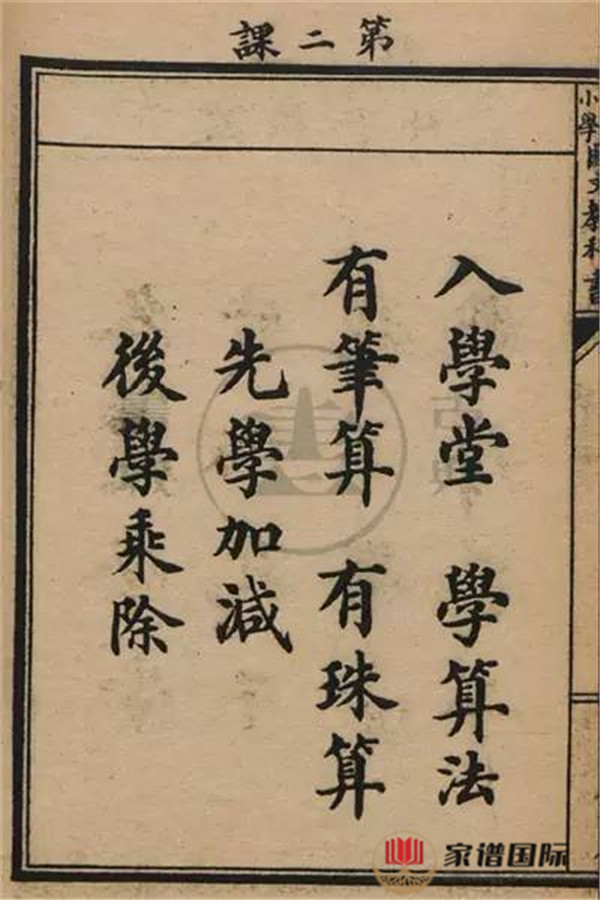 第二課
小學國文教科書
入學堂 學算法
有筆算 有珠算
先學加減
後學乘除
家谱国际